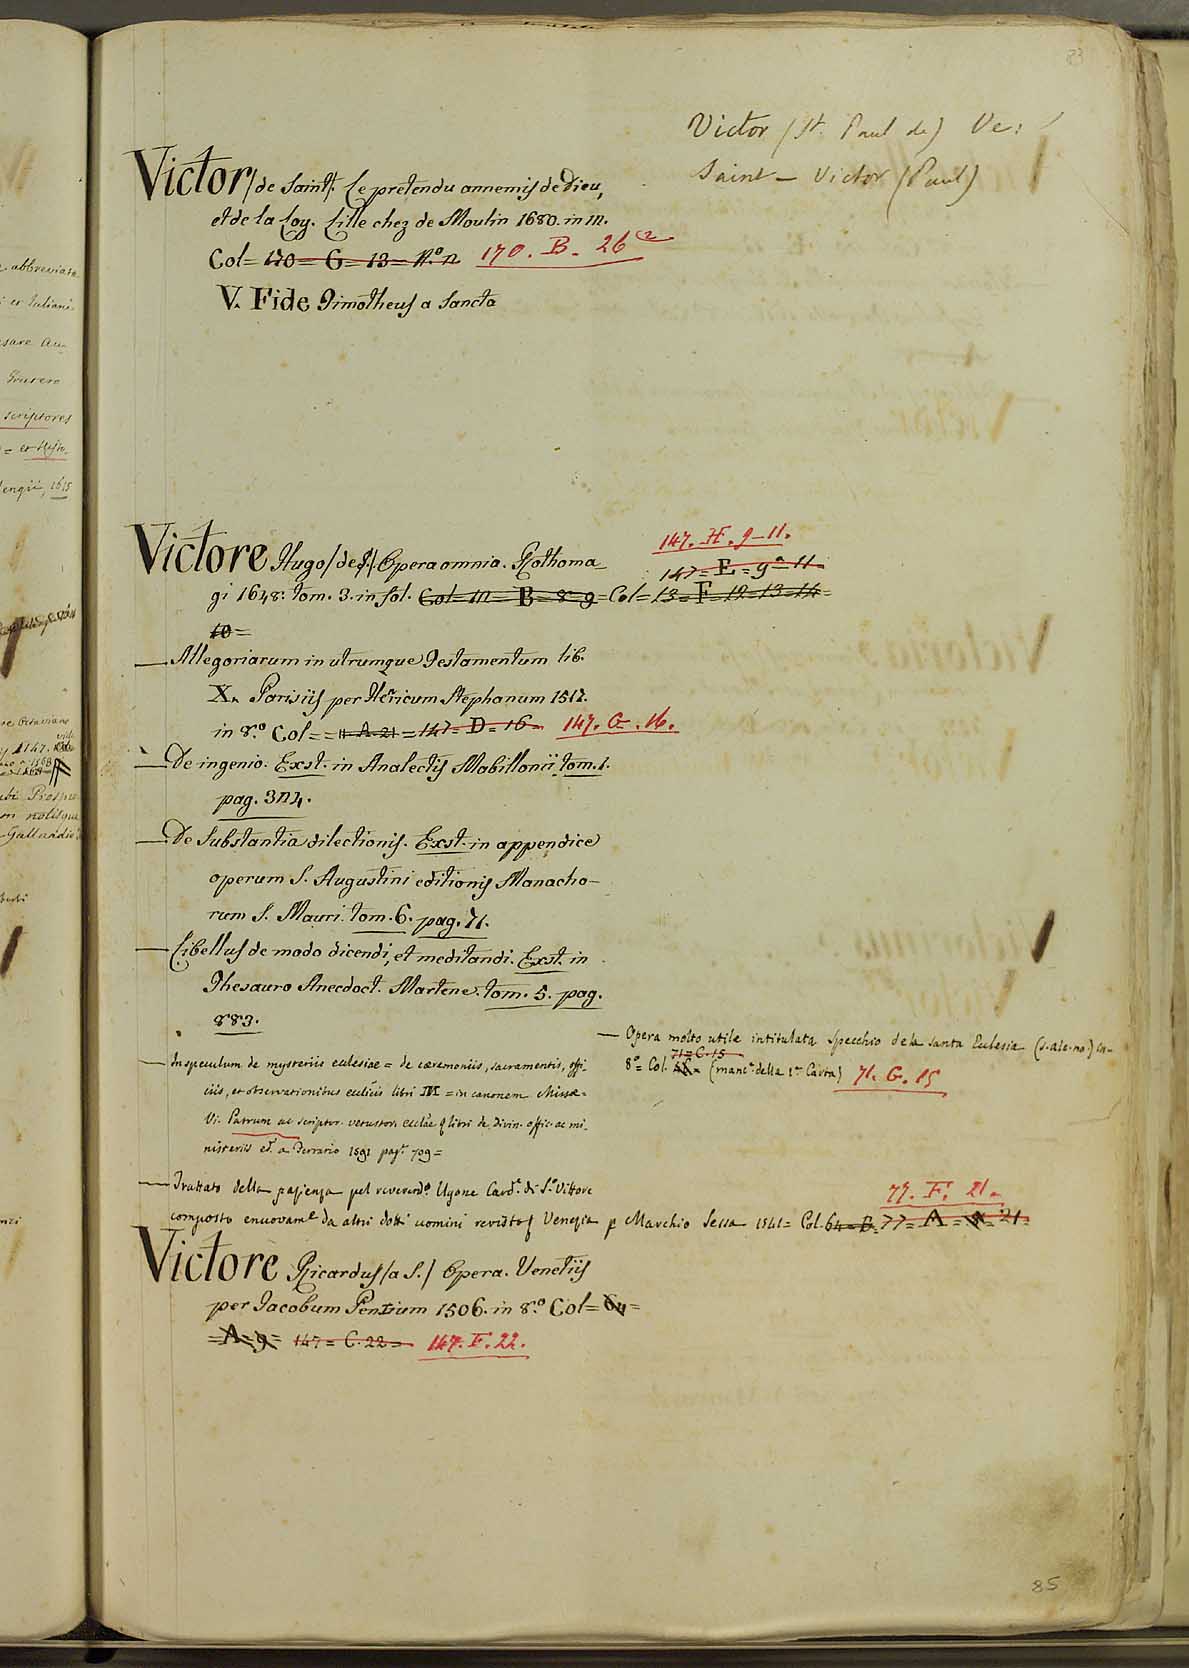 83
Victor (St. Paul de) Ve:
Saint - Victor (Paul)
Victor /de Saint/. Le pretendu annemis de Dieu,
et de la Loy. Lille chez de Moulin 1680. in 12.
Col= 170= G= 13= N.º 12 170. B. 26
V. Fide Timotheus a Sancta
Victore Hugo /de S./ Opera omnia. Rothoma-
147. H. 9-11.
147= E= 9ª 11-
gi 1648. tom. 3. in fol. Col= 111= B= 8= 9= Col= 13= F= 12= 13= 14=
10=
— Allegoriarum in utrumque Testamentum lib.
X. Parisiis per Hēricum Stephanum 1517.
in 8.º Col== 11 A. 21= 147= D= 16- 147. G. 16.
— De ingenio. Exst. in Analectis Mabillonii tom. 1.
pag.
— De Substantia dilectionis. Exst. in appendice
operum S. Augustini editionis Manacho-
rum S. Mauri. tom. 6. pag. 71.
— Libellus de modo dicendi, et meditandi. Exst. in
Thesauro Anecdoct. Martene. tom. 5. pag.
883.
— Opera molto utile intitulata Specchio dela santa Eclesia (s. ale. no.) in-
71= C. 15
8º= Col. (manc.ª della 1ª Carta) 71. G. 15
— In speculum de mysteriis eclesiae= de caeremoniis, sacramentis, offi-
ciis, et observationibus eccl̄icis libri III = in canonem Missae=
Vi. Patrum ac scriptor. vetustior. eccl̄ae q libri de Divin. offic. ac mi-
nisteriis ed. a Ferrario 1591 pag. 709=
— Trattato della pazienza pel reverend.º Ugone Card.e di S.º Vittore
77. F. 21-
composto enuovam.e da altri dotti uomini revisto Venezia p Marchio Sessa 1541= Col. 64= B. 77= A= 21-
Victore Ricardus /a S./ Opera. Venetiis
per Jacobum Pentium 1506. in 8.º Col= 64=
= A= 9= 147= C. 22= 147. F. 22.
85